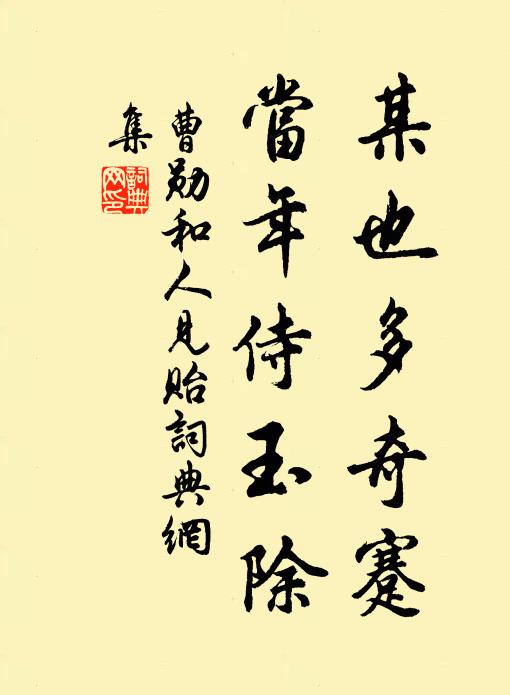 某也多奇蹇
當年侍玉除
曹勛和人見貽詞典網
集
詞典
网印